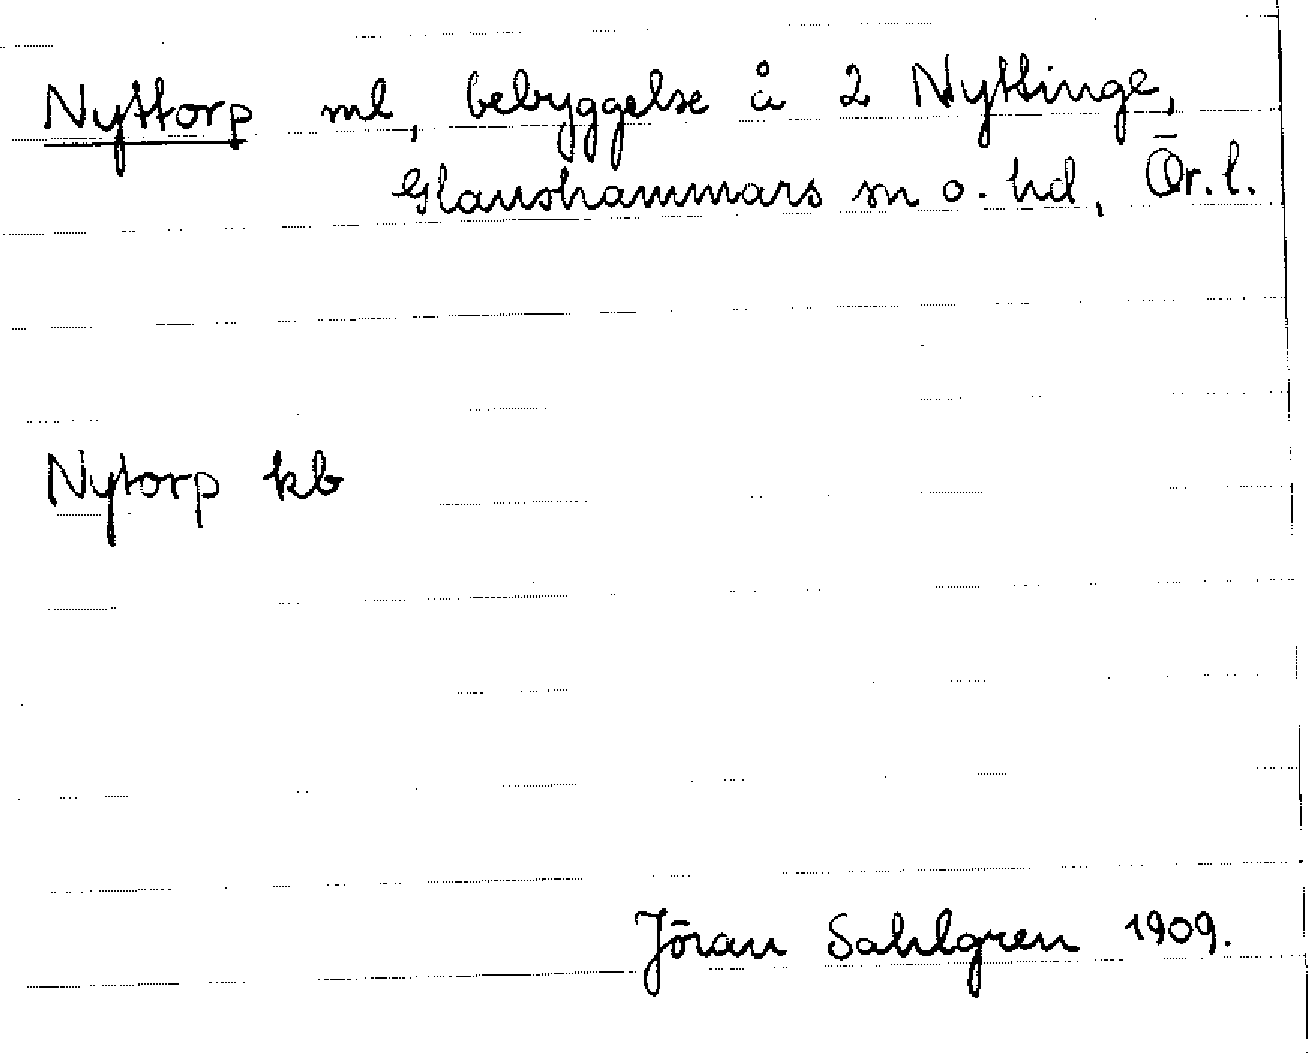 Nyttorp ml, bebyggelse å 2 Nyttinge,
Glanshammars sn o. hd, Ör. l.
Nytorp kb
Jöran Sahlgren 1909.